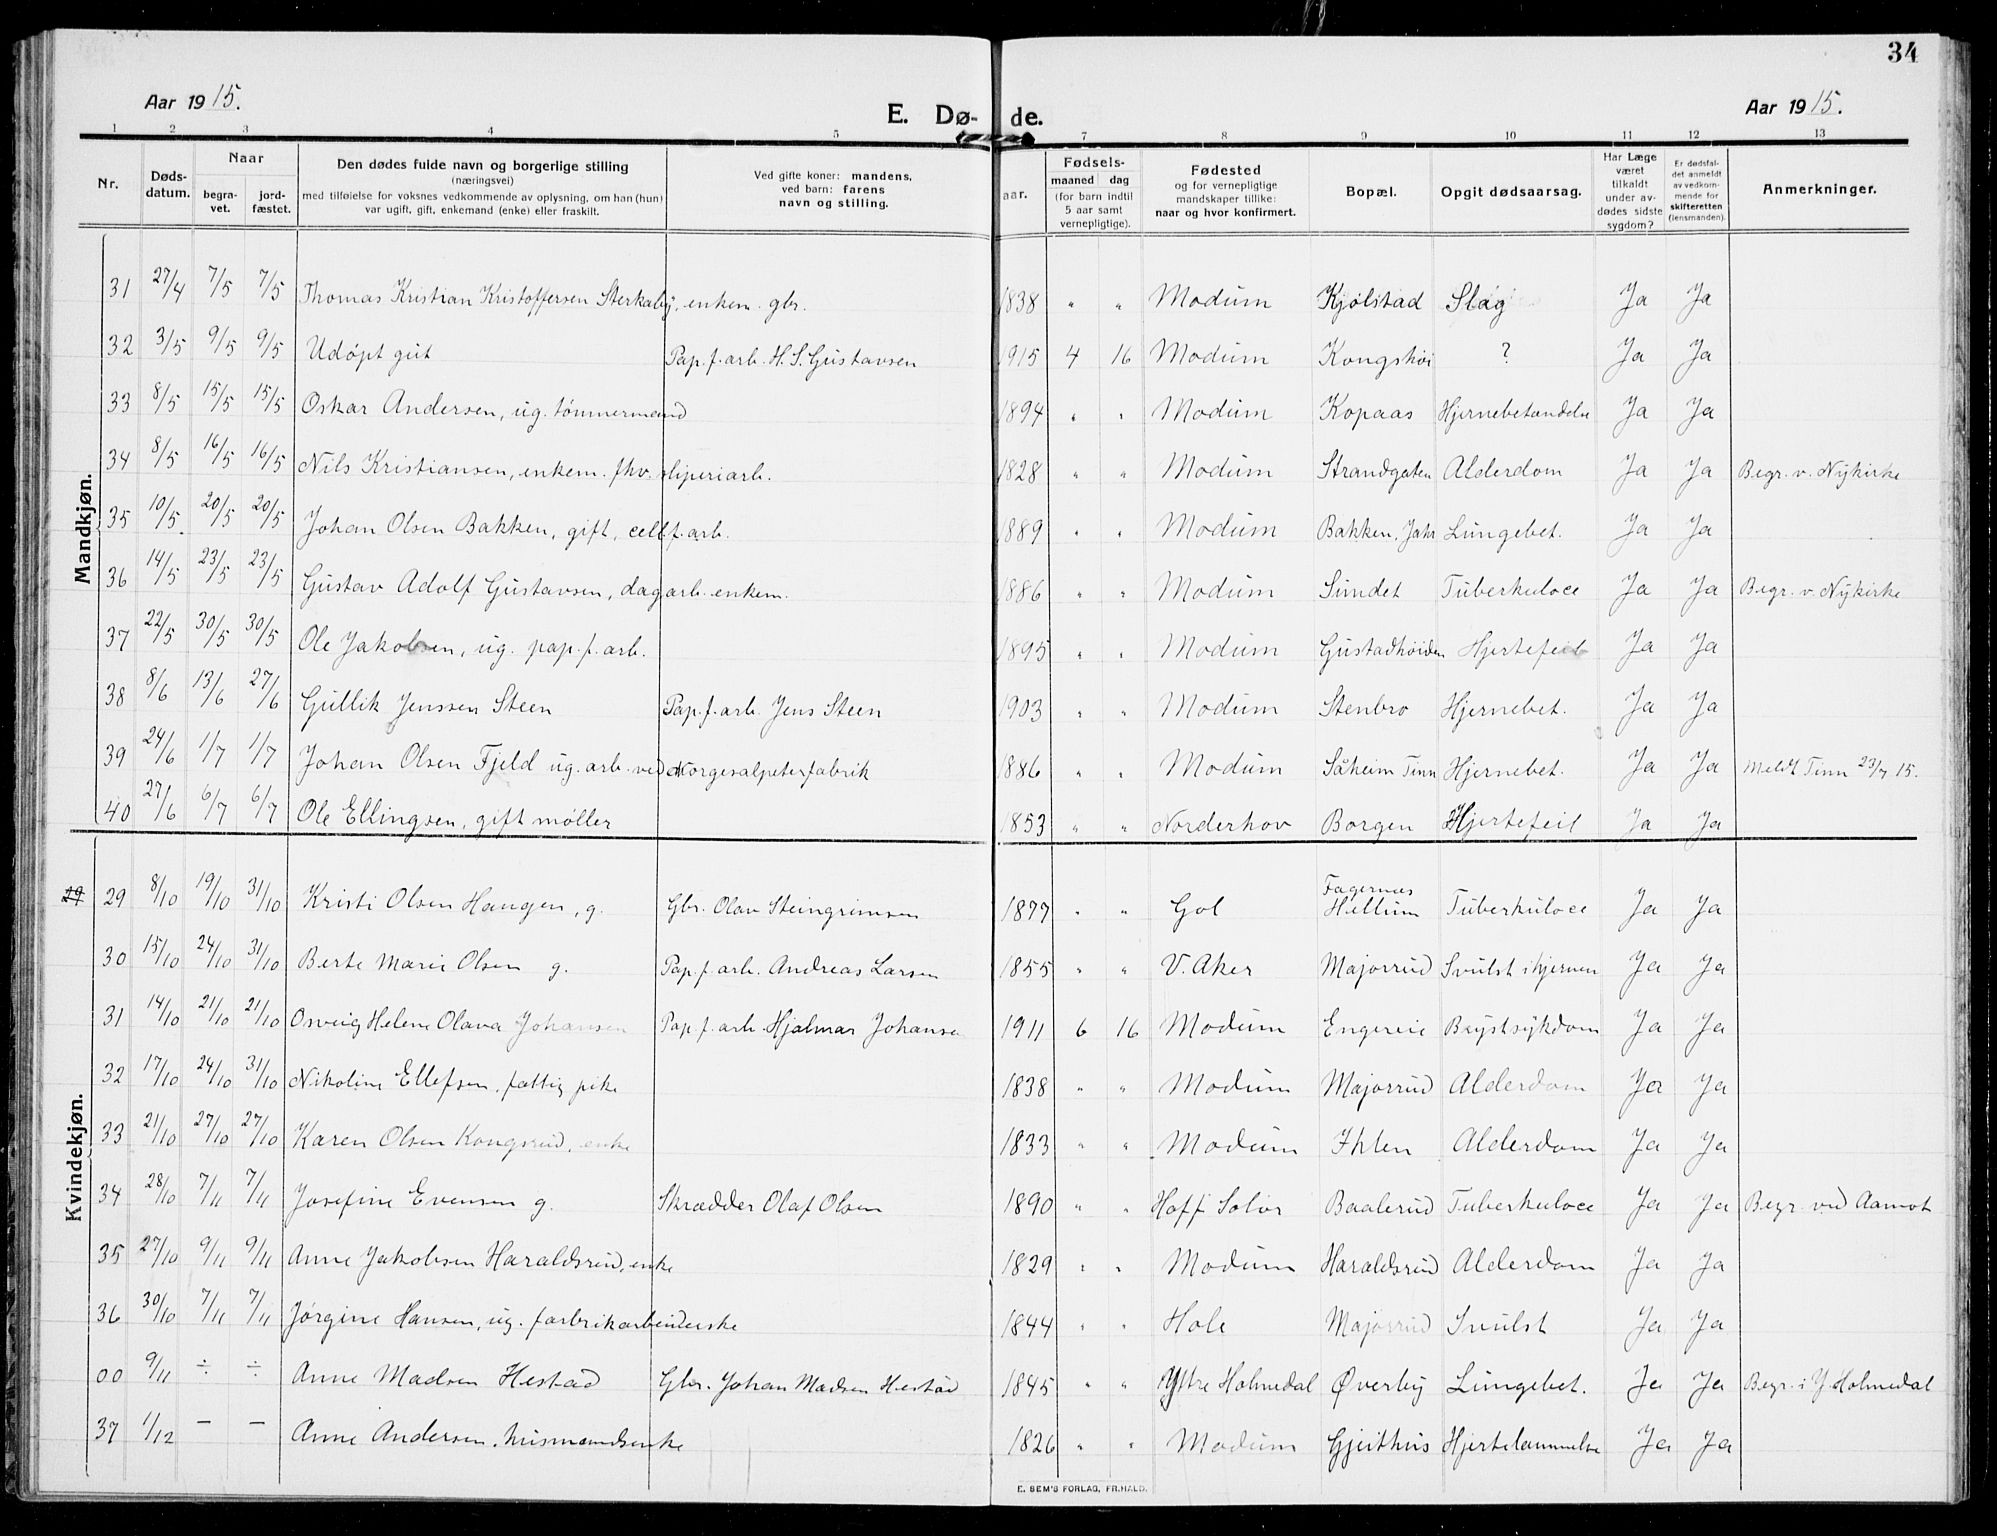 34
Aar 1915.
E. Dø-
de.
Aar 1915.
1 2 3 4 5 7 8 9 10 11 12 13
Nr.
Døds-datum.
Naar
begra-vet.
jord-fæstet.
Den dødes fulde navn og borgerlige stilling
(næringsvei)
med tilføielse for voksnes vedkommende av oplysning, om han (hun)
var ugift, gift, enkemand (enke) eller fraskilt.
Ved gifte koner: mandens,
ved barn: farens
navn og stilling.
Fødsels-
aar.
maaned
dag
(for barn indtil
5 aar samt
vernepligtige).
Fødested
og for vernepligtige
mandskaper tillike:
naar og hvor konfirmert.
Bopæl.
Opgit dødsaarsag.
Har Læge
været
tilkaldt
under av-
dødes sidste
sygdom?
Er dødsfal-
det anmeldt
av vedkom-
mende for
skifteretten
(lensmanden).
Anmerkninger.
Mandkjøn.
31 27/4 7/5 7/5 Thomas Kristian Kristoffersen Sterkaby, enkem. gbr. 1838 " " Modum Kjölstad Slag Ja Ja
32 3/5 9/5 9/5 Udøpt gut Pap.f.arb. H. S. Gustavsen 1915 4 16 Modum Kongshøi ? Ja Ja
33 8/5 15/5 15/5 Oskar Andersen, ug. tømmermand 1894 " " Modum Kopaas Hjernebetændelse Ja Ja
34 8/5 16/5 16/5 Nils Kristiansen, enkem. fhv. sliperiarb. 1828 " " Modum Strandgaten Alderdom Ja Ja Begr. v. Nykirke
35 10/5 20/5 20/5 Johan Olsen Bakken, gift, cell.f.arb. 1889 " " Modum Bakken, Jahr Lungebet. Ja Ja
36 14/5 23/5 23/5 Gustav Adolf Gustavsen, dagarb. enkem. 1886 " " Modum Sundet Tuberkuloce Ja Ja Begr. v. Nykirke
37 22/5 30/5 30/5 Ole Jakobsen, ug. pap.f.arb. 1895 " " Modum Gustadhøiden Hjertefeil Ja Ja
38 8/6 13/6 27/6 Gullik Jenssen Steen Pap.f.arb. Jens Steen 1903 " " Modum Stenbro Hjernebet. Ja Ja
39 24/6 1/7 1/7 Johan Olsen Fjeld ug. arb. ved Norgesalpeterfabrik 1886 " " Modum Såheim Tinn Hjernebet. Ja Ja Meldt Tinn 23/7 15.
40 27/6 6/7 6/7 Ole Ellingsen, gift møller 1853 " " Norderhov Borgen Hjertefeil Ja Ja
Kvindekjøn.
29 8/10 19/10 31/10 Kristi Olsen Haugen, g. Gbr. Olav Steingrimsen 1877 " " Gol Fagernæs Hellum Tuberkuloce Ja Ja
30 15/10 24/10 31/10 Berte Marie Olsen g. Pap.f.arb. Andreas Larsen 1855 " " V. Aker Majorrud Svulst i hjernen Ja Ja
31 14/10 21/10 21/10 Osveig Helene Olava Johansen Pap.f.arb. Hjalmar Johanse 1911 6 16 Modum Engereie Brystsykdom Ja Ja
32 17/10 24/10 31/10 Nikoline Ellefsen, fattig pike 1838 " " Modum Majorrud Alderdom Ja Ja
33 21/10 27/10 27/10 Karen Olsen Kongsrud, enke 1833 " " Modum Ihlen Alderdom Ja Ja
34 28/10 7/11 7/11 Josefine Evensen g. Skrædder Olaf Olsen 1890 " " Hoff Solør Baalerud Tuberkuloce Ja Ja Begr. ved Aamot
35 27/10 9/11 9/11 Anne Jakobsen Haraldsrud, enke 1829 " " Modum Haraldsrud Alderdom Ja Ja
36 30/10 7/11 7/11 Jørgine Hansen, ug. fabrikarbeiderske 1844 " " Hole Majorrud Svulst Ja Ja
00 9/11 ÷ ÷ Anne Madsen Hestad Gbr. Johan Madsen Hestad 1845 " " Ytre Holmedal Øverby Lungebet. Ja Ja Begr. i Y Holmedal
37 1/12 — — Anne Andersen, husmandsenke 1826 " " Modum Gjeithus Hjertelammelse Ja Ja
E. SEM'S FORLAG, FR.HALD.